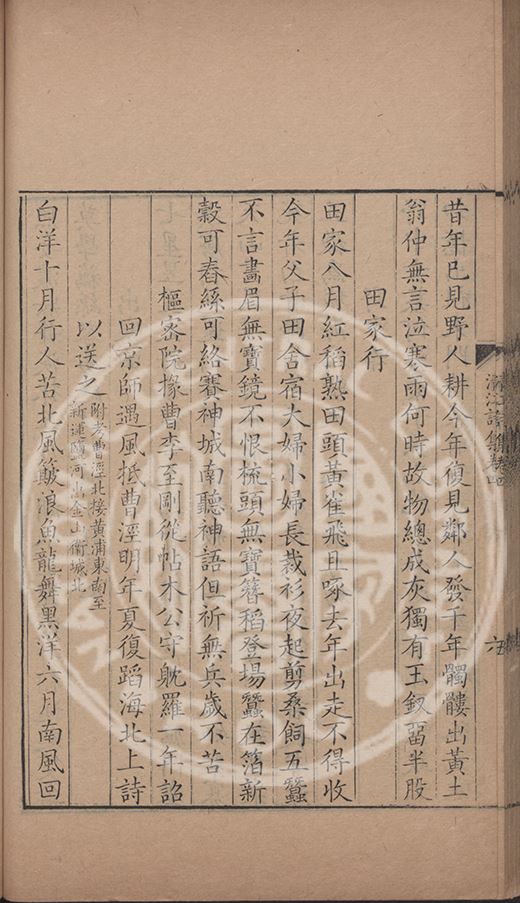 昔年已見野人耕今年復見鄰人發千年髑髏出黃土
翁仲無言泣寒雨何時故物總成灰獨有玉釵留半股
田家行
田家八月紅稻熟田頭黃雀飛且啄去年出走不得收
今年父子田舍宿大婦小婦長裁衫夜起剪桑飼五蠶
不言畫眉無寶鏡不恨梳頭無寶簪稻登場蠶在箔新
穀可舂絲可絡賽神城南聽神語但祈無兵歲不苦
樞密院掾曹李至剛從帖木公守躭羅一年詔
回京師遇風抵曹涇明年夏復蹈海北上詩
以送之附老曹涇北接黃浦東南至
新運鹽河出金山衛城北
白洋十月行人苦北風簸浪魚龍舞黑洋六月南風回
清江詩集卷四
六